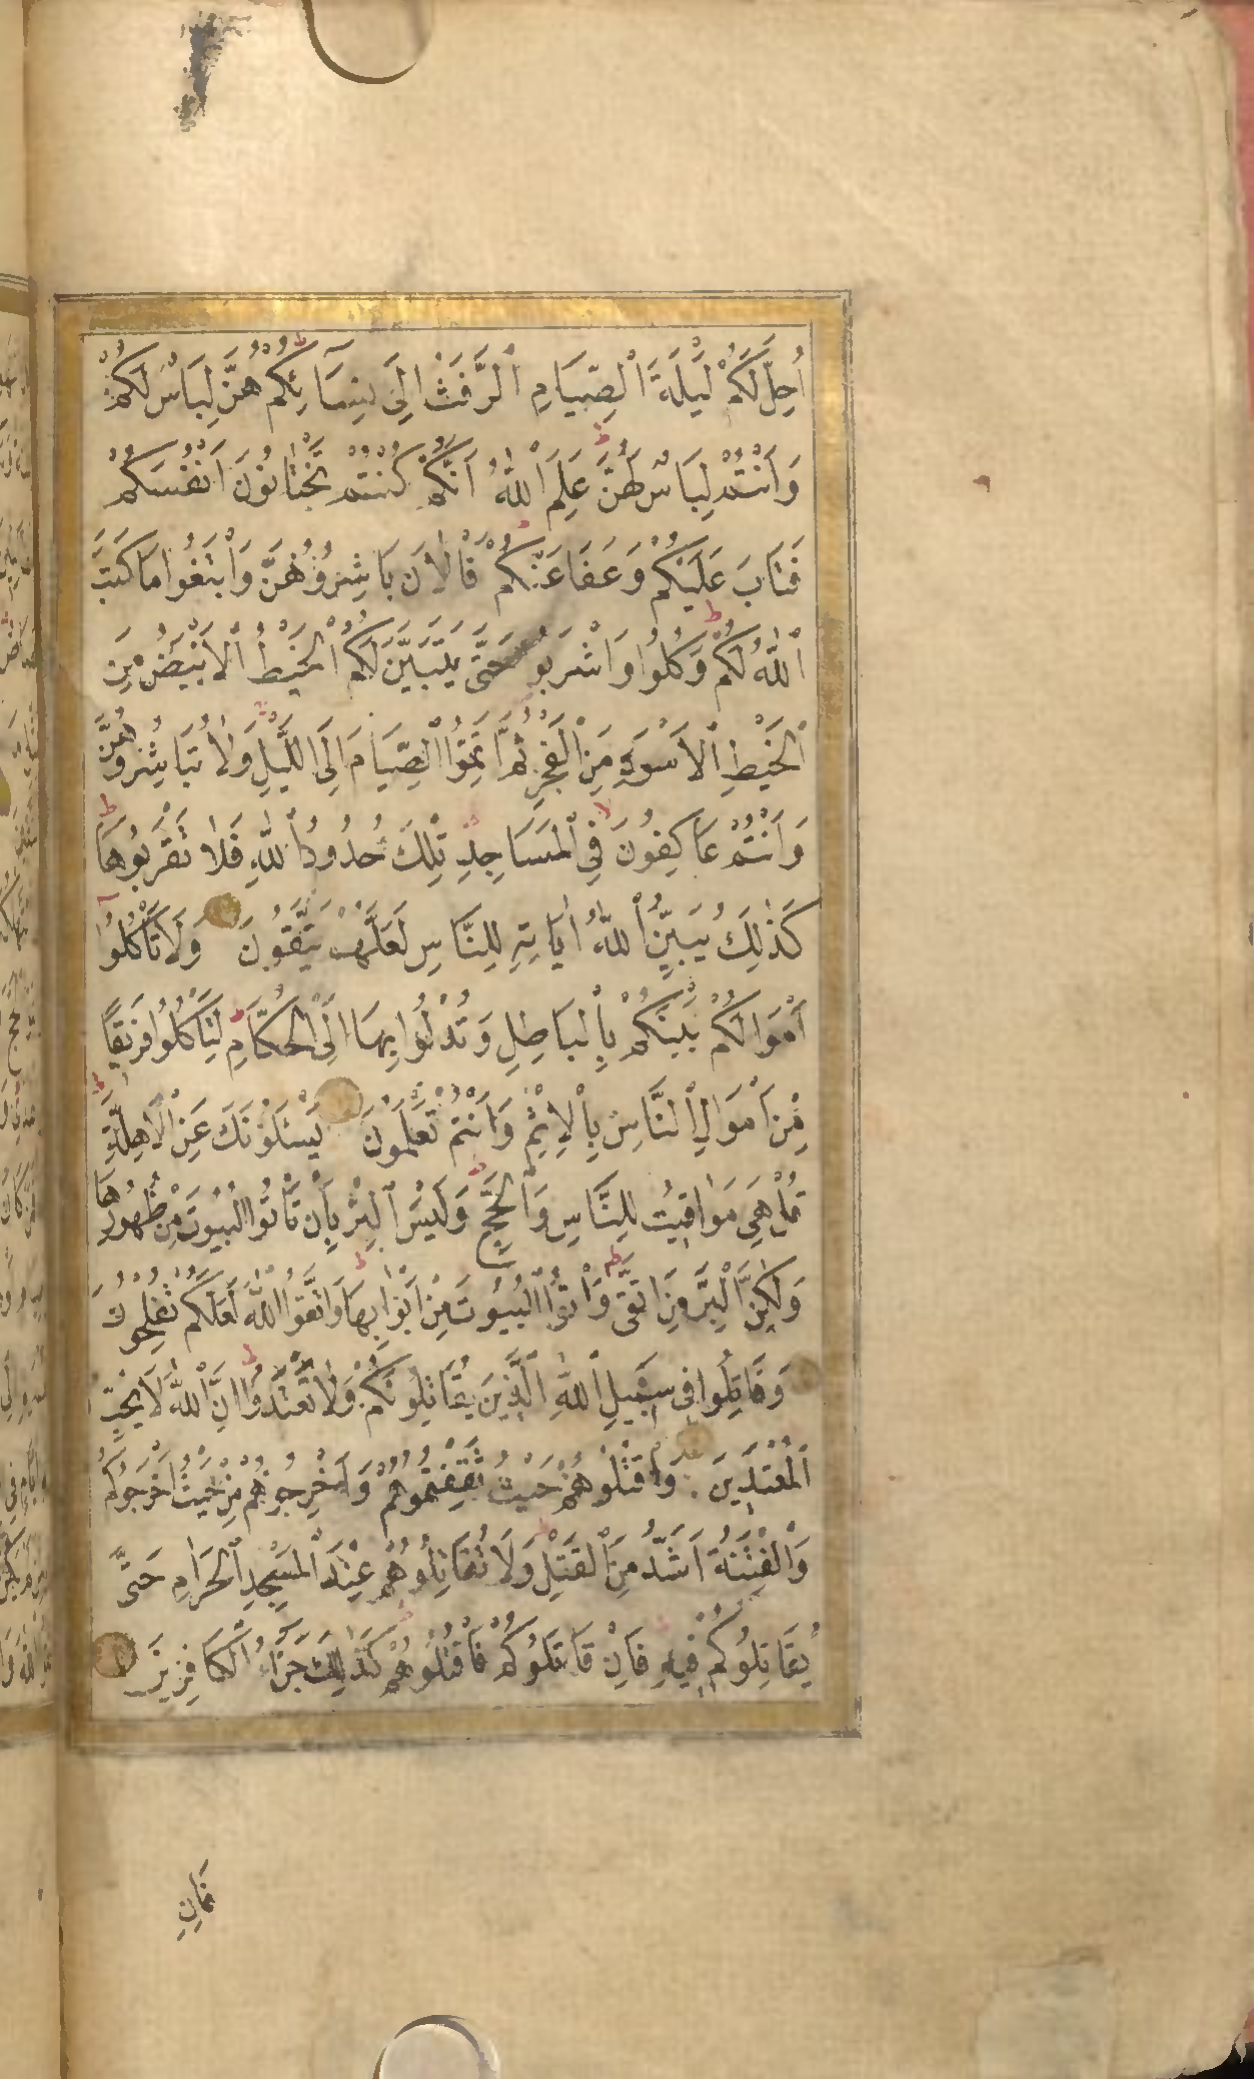 اُحِلَّ لَكُمْ لَيْلَةَ الصِّيَامِ الرَّفَثُ اِلَى نِسَآئِكُمْ هُنَّ لِبَاسٌ لَكُمْ
وَاَنْتُمْ لِبَاسٌ لَهُنَّ عَلِمَ اللّٰهُ اَنَّكُمْ كُنْتُمْ تَخْتَانُونَ اَنْفُسَكُمْ
فَتَابَ عَلَيْكُمْ وَعَفَا عَنْكُمْ فَالْاٰنَ بَاشِرُوهُنَّ وَابْتَغُوا مَا كَتَبَ
اللّٰهُ لَكُمْ وَكُلُوا وَاشْرَبُوا حَتَّى يَتَبَيَّنَ لَكُمُ الْخَيْطُ الْاَبْيَضُ مِنَ
الْخَيْطِ الْاَسْوَدِ مِنَ الْفَجْرِ ثُمَّ اَتِمُّوا الصِّيَامَ اِلَى اللَّيْلِ وَلَا تُبَاشِرُوهُنَّ
وَاَنْتُمْ عَاكِفُونَ فِي الْمَسَاجِدِ تِلْكَ حُدُودُ اللّٰهِ فَلَا تَقْرَبُوهَا
كَذٰلِكَ يُبَيِّنُ اللّٰهُ اٰيَاتِهِ لِلنَّاسِ لَعَلَّهُمْ يَتَّقُونَ وَلَا تَأْكُلُوا
اَمْوَالَكُمْ بَيْنَكُمْ بِالْبَاطِلِ وَتُدْلُوا بِهَا اِلَى الْحُكَّامِ لِتَأْكُلُوا فَرِيقًا
مِنْ اَمْوَالِ النَّاسِ بِالْاِثْمِ وَاَنْتُمْ تَعْلَمُونَ يَسْئَلُونَكَ عَنِ الْاَهِلَّةِ
قُلْ هِيَ مَوَاقِيتُ لِلنَّاسِ وَالْحَجِّ وَلَيْسَ الْبِرُّ بِاَنْ تَأْتُوا الْبُيُوتَ مِنْ ظُهُورِهَا
وَلٰكِنَّ الْبِرَّ مَنِ اتَّقَى وَأْتُوا الْبُيُوتَ مِنْ اَبْوَابِهَا وَاتَّقُوا اللّٰهَ لَعَلَّكُمْ تُفْلِحُونَ
وَقَاتِلُوا فِي سَبِيلِ اللّٰهِ الَّذِينَ يُقَاتِلُونَكُمْ وَلَا تَعْتَدُوا اِنَّ اللّٰهَ لَا يُحِبُّ
الْمُعْتَدِينَ وَاقْتُلُوهُمْ حَيْثُ ثَقِفْتُمُوهُمْ وَاَخْرِجُوهُمْ مِنْ حَيْثُ اَخْرَجُوكُمْ
وَالْفِتْنَةُ اَشَدُّ مِنَ الْقَتْلِ وَلَا تُقَاتِلُوهُمْ عِنْدَ الْمَسْجِدِ الْحَرَامِ حَتَّى
يُقَاتِلُوكُمْ فِيهِ فَاِنْ قَاتَلُوكُمْ فَاقْتُلُوهُمْ كَذٰلِكَ جَزَآءُ الْكَافِرِينَ
فَاِنِ